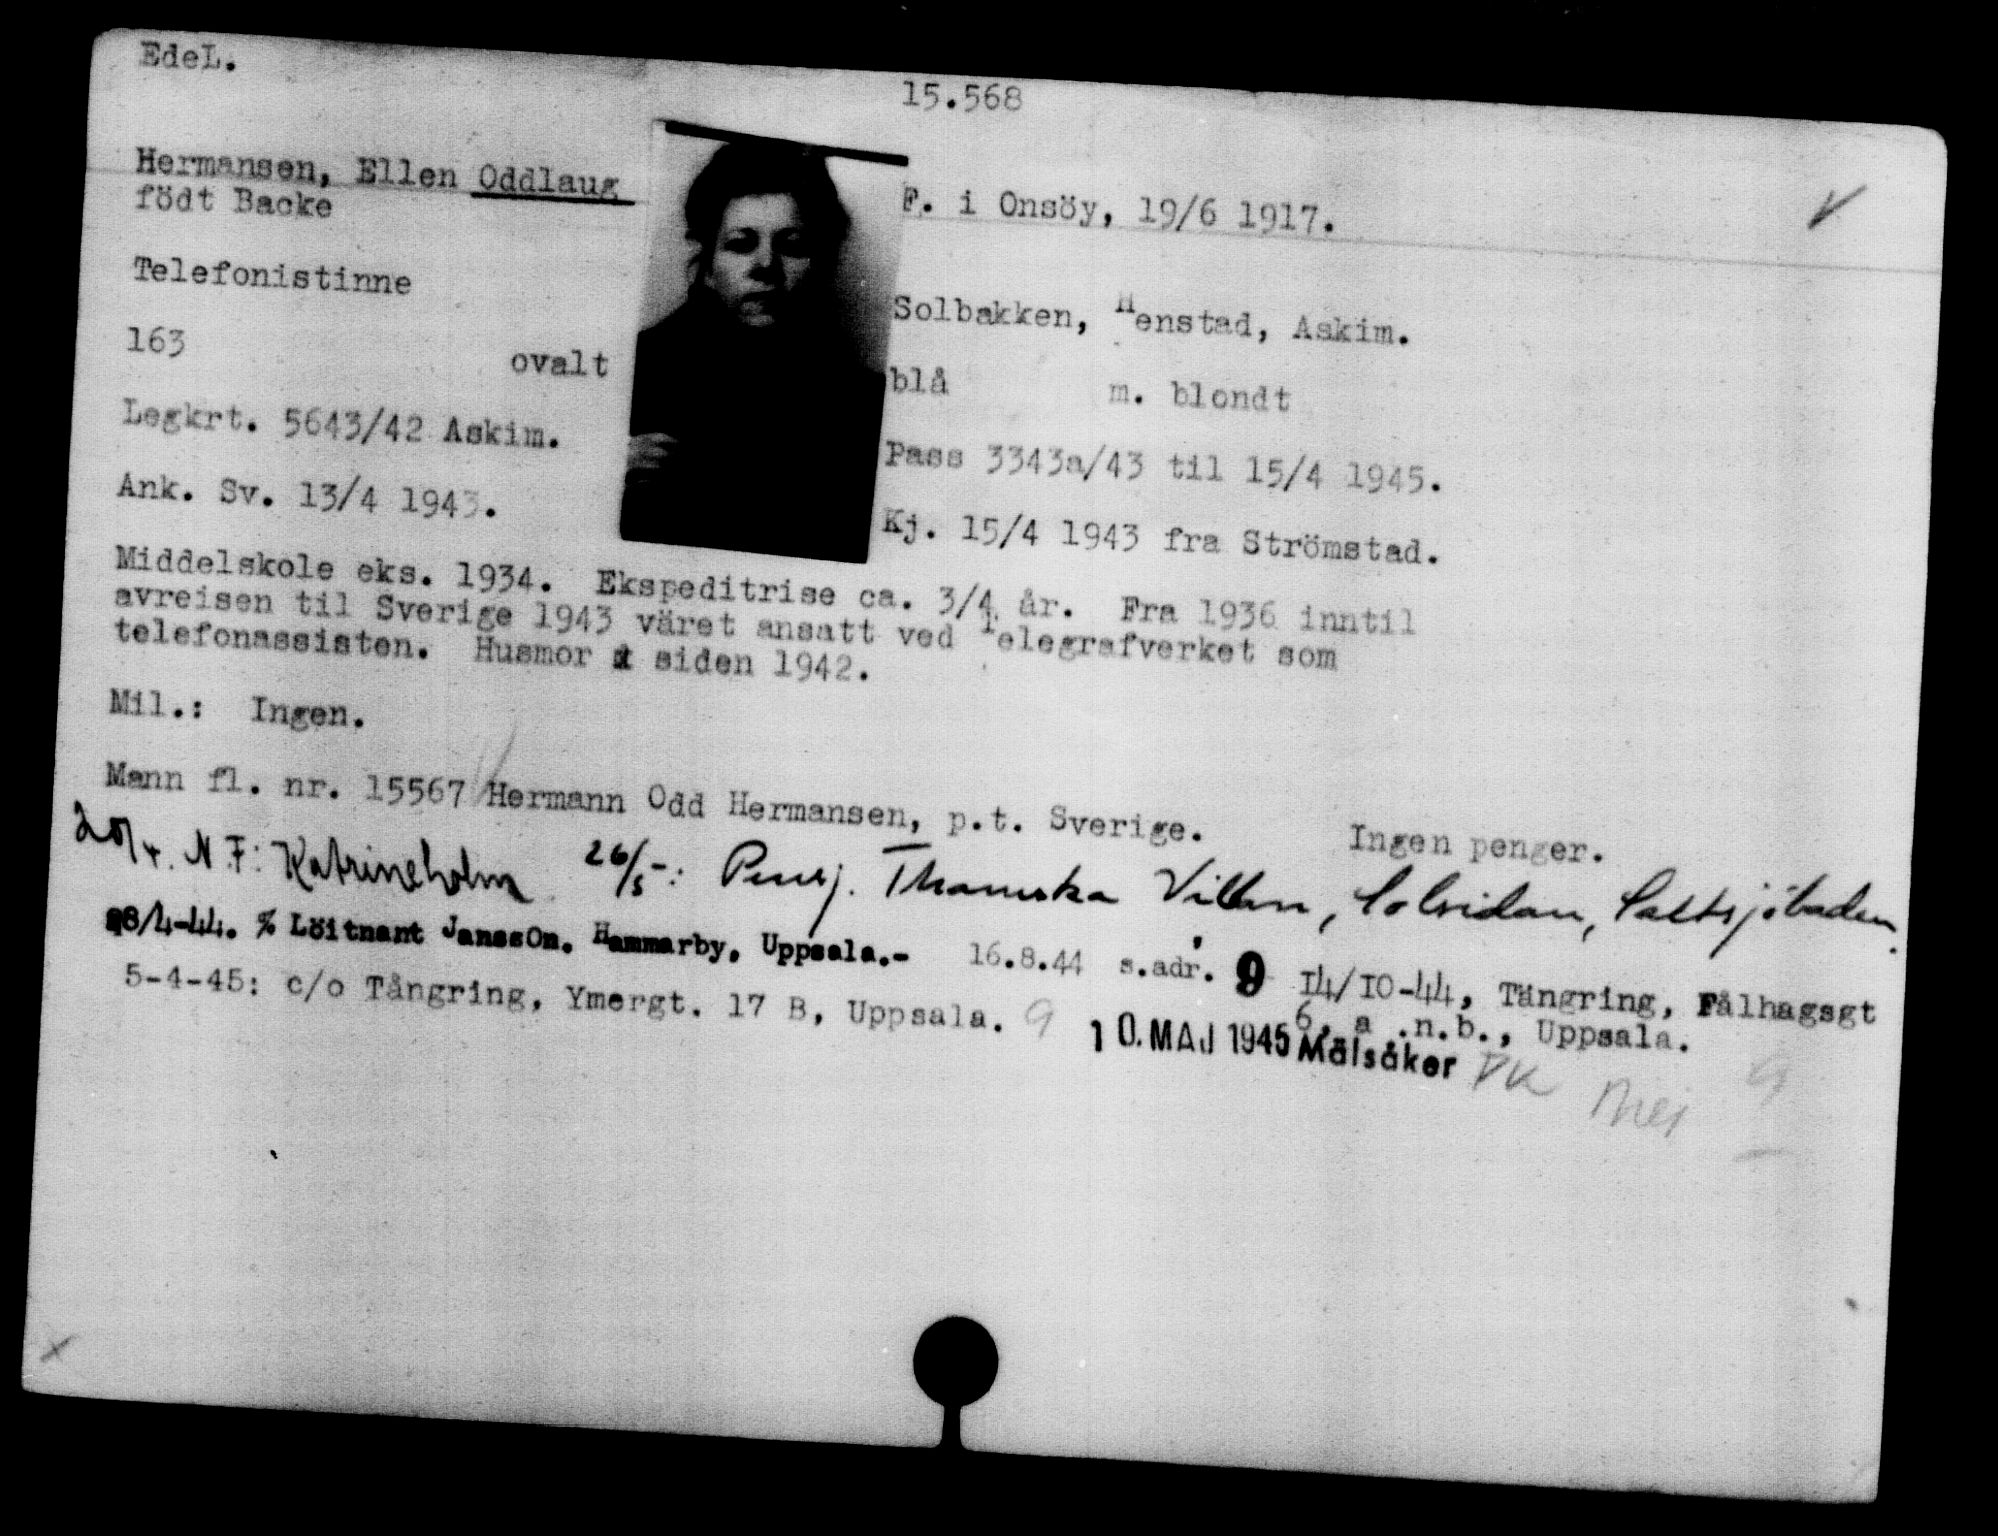 EdeL.
15.568
Hermansen, Ellen Oddlaug
födt Backe
F. i Onsöy, 19/6 1917.
Telefonistinne
Solbakken, Henstad, Askim.
163 ovalt
blå m. blondt
Legkrt. 5643/42 Askim.
Pass 3343a/43 til 15/4 1945.
Ank. Sv. 13/4 1943.
Kj. 15/4 1943 fra Strömstad.
Middelskole eks. 1934. Ekspeditrise ca. 3/4 år. Fra 1936 inntil
avreisen til Sverige 1943 väret ansatt ved Telegrafverket som
telefonassisten. Husmor siden 1942.
Mil.: Ingen.
Mann fl. nr. 15567 Hermann Odd Hermansen, p.t. Sverige. Ingen penger.
20/4. N.F: Katrineholm 26/5-: Pensj. Villan, Solsidan, Saltsjöbaden.
28/4-44. % Löitnant JanssOn. Hammarby, Uppsala.- 16.8.44 s.adr. 9 14/10-44, Tängring, Fålhagsgt
6, a .n.b., Uppsala.
5-4-45: c/o Tångring, Ymergt. 17 B, Uppsala. 9
10. MAJ 1945 Mälsåker PK
9